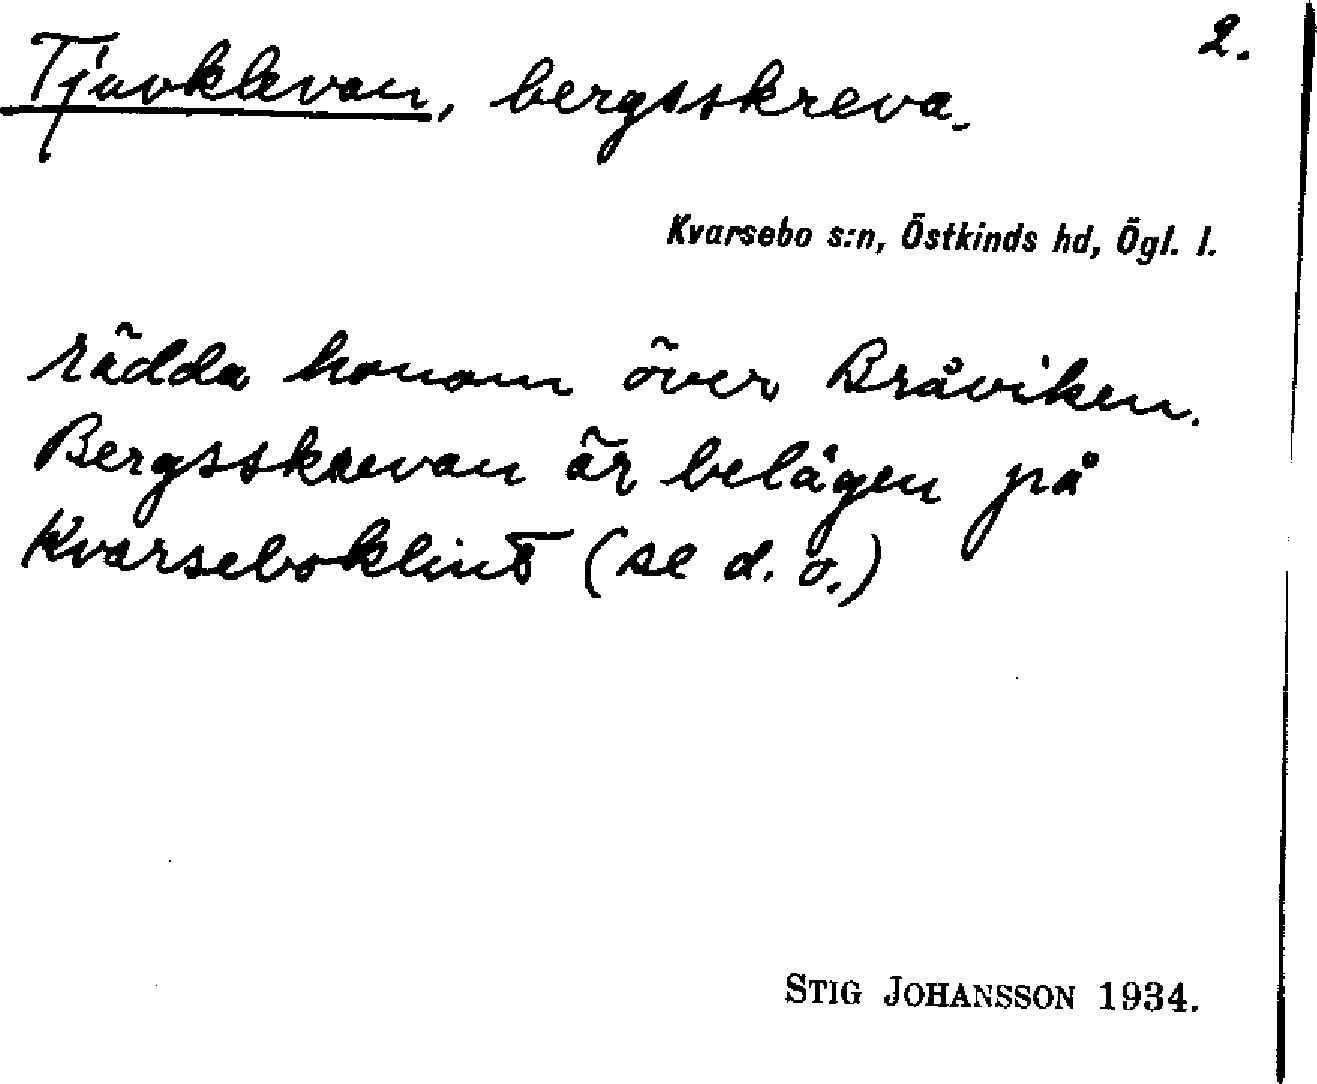 2.
Tjuvklevan, bergsskreva.
Kvarsebo s:n, Östkinds hd, Ögl. l.
rädda honom över Bråviken.
Bergsskrevan är belägen på
Kvarseboklint (se d. o.)
STIG JOHANSSON 1934.